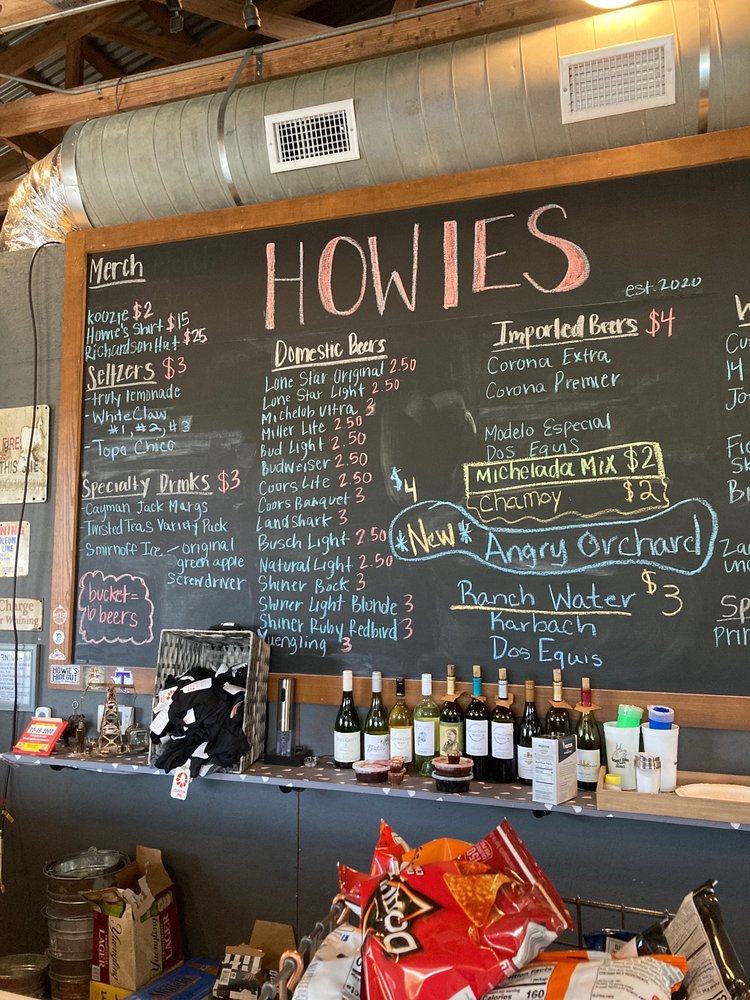 HOWIES
est. 2020
Merch
Koozie $2
Howie's Shirt $15
Richardson Hat $25
Seltzers $3
-truly lemonade
-White Claw
#1, #2, #3
-Topo Chico
Specialty Drinks $3
-Cayman Jack Margs
-Twisted Teas Variety Pack
-Smirnoff Ice - original
green apple
screwdriver
bucket=
6 beers
Domestic Beers
Lone Star Original 2.50
Lone Star Light 2.50
Michelob Ultra 3
Miller Lite 2.50
Bud Light 2.50
Budweiser 2.50
Coors Lite 2.50
Coors Banquet 3
Landshark 3
Busch Light 2.50
Natural Light 2.50
Shiner Bock 3
Shiner Light Blonde 3
Shiner Ruby Redbird 3
Yuengling 3
Imported Beers $4
Corona Extra
Corona Premier
Modelo Especial
Dos Equis
Michelada Mix $2
Chamoy $2
$4
*New* Angry Orchard
Ranch Water $3
Karbach
Dos Equis
THIS SITE
LINE
Charge
HOWIE'S
HIDEOUT
10-15-2000
LAGER
160
Calories